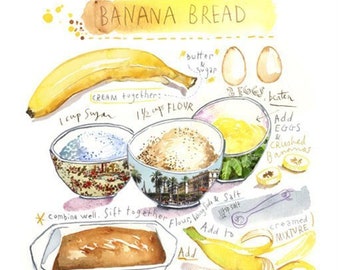 BANANA BREAD
butter
& sugar
CREAM together:
2 EGGS beaten
1 cup Sugar
1 1/2 cups FLOUR
Add
EGGS
&
crushed
Bananas
* Combine well. Sift together Flour, & Salt
Add to creamed
MIXTURE
Add